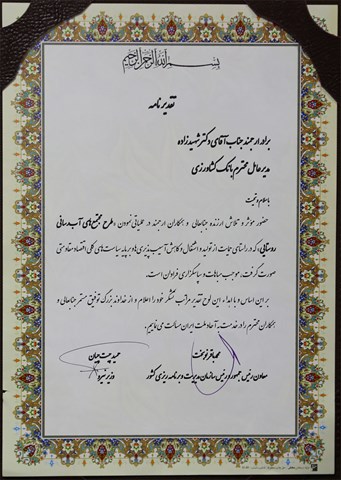 بسم الله الرحمن الرحیم
تقدیرنامه
برادر ارجمند جناب آقای دکتر شهیدزاده
مدیرعامل محترم بانک کشاورزی
با سلام و تحیت
حضور مؤثر و تلاش ارزنده جنابعالی و همکاران ارجمند در عملیاتی نمودن «طرح مجتمع‌های آب‌رسانی
روستایی» که در راستای حمایت از تولید و اشتغال و کاهش آسیب‌پذیری‌ها و بر پایه سیاست‌های کلی اقتصاد مقاومتی
صورت گرفت، موجب مباهات و سپاسگزاری فراوان است.
بر این اساس و با اهداء این لوح تقدیر مراتب تشکر خود را اعلام و از خداوند بزرگ توفیق مستمر جنابعالی و
همکاران محترم را در خدمت به آحاد ملت ایران مسألت می‌نماییم.
محمدباقر نوبخت
معاون رئیس جمهور و رئیس سازمان مدیریت و برنامه‌ریزی کشور
حمید چیت‌چیان
وزیر نیرو